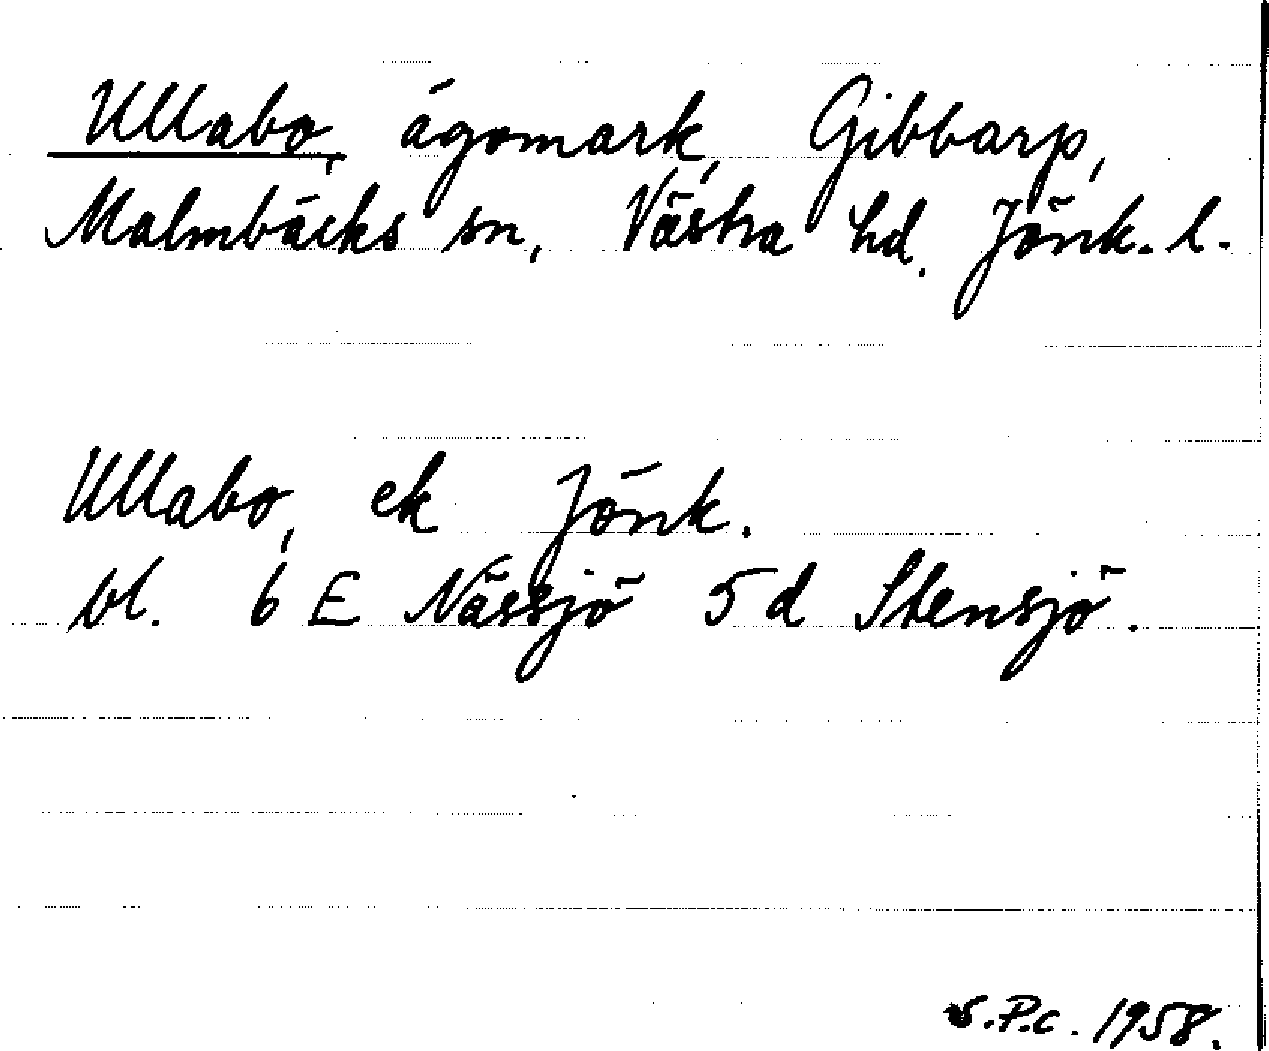 Ullabo, ägomark, Gibbarp,
Malmbäcks sn, Västra hd. Jönk. l.
Ullabo, ek Jönk.
bl. 6 E Nässjö 5 d Stensjö.
S.P.C. 1958.